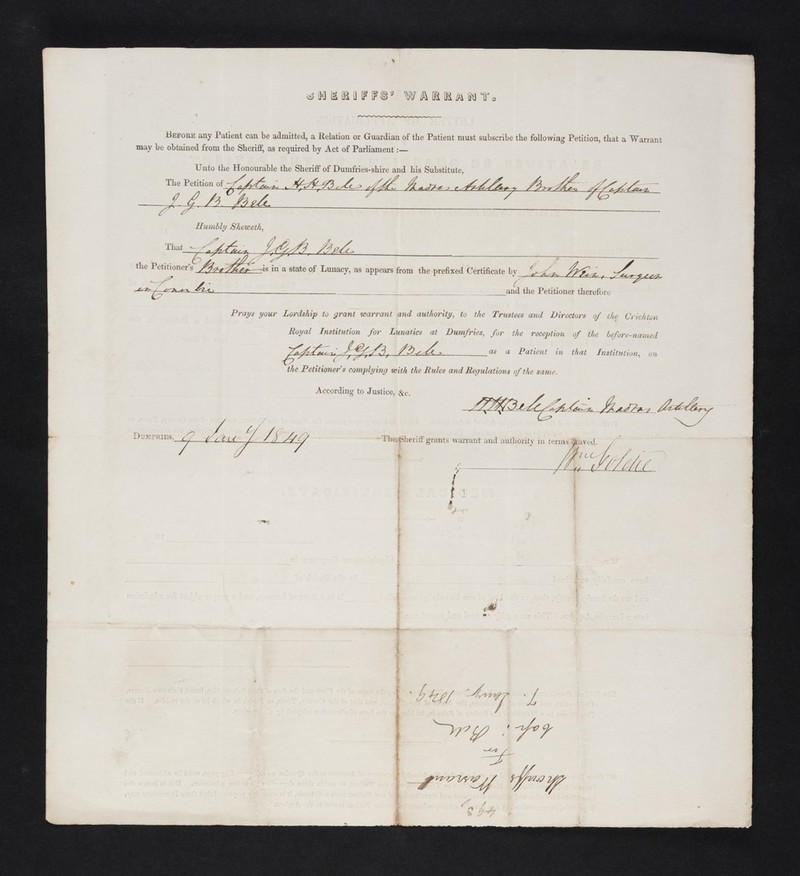 SHERIFFS' WARRANT.
BEFORE any Patient can be admitted, a Relation or Guardian of the Patient must subscribe the following Petition, that a Warrant
may be obtained from the Sheriff, as required by Act of Parliament :—
Unto the Honourable the Sheriff of Dumfries-shire and his Substitute,
The Petition of Captain H. H. Bell of the Madras Artillery Brother of Captain
J. G. B. Bell
Humbly Sheweth,
That Captain J. G. B. Bell
the Petitioner's Brother is in a state of Lunacy, as appears from the prefixed Certificate by John Weir, Surgeon
in and the Petitioner therefore
Prays your Lordship to grant warrant and authority, to the Trustees and Directors of the Crichton
Royal Institution for Lunatics at Dumfries, for the reception of the before-named
Captain J. G. B. Bell as a Patient in that Institution, on
the Petitioner's complying with the Rules and Regulations of the same.
According to Justice, &c.
HHBell Captain Madras Artillery
DUMFRIES, 9 Jany 1849 The Sheriff grants warrant and authority in terms craved.
Wm Goldie
493
Sheriffs Warrant
For
Cap: Bell
Jany. 1849.